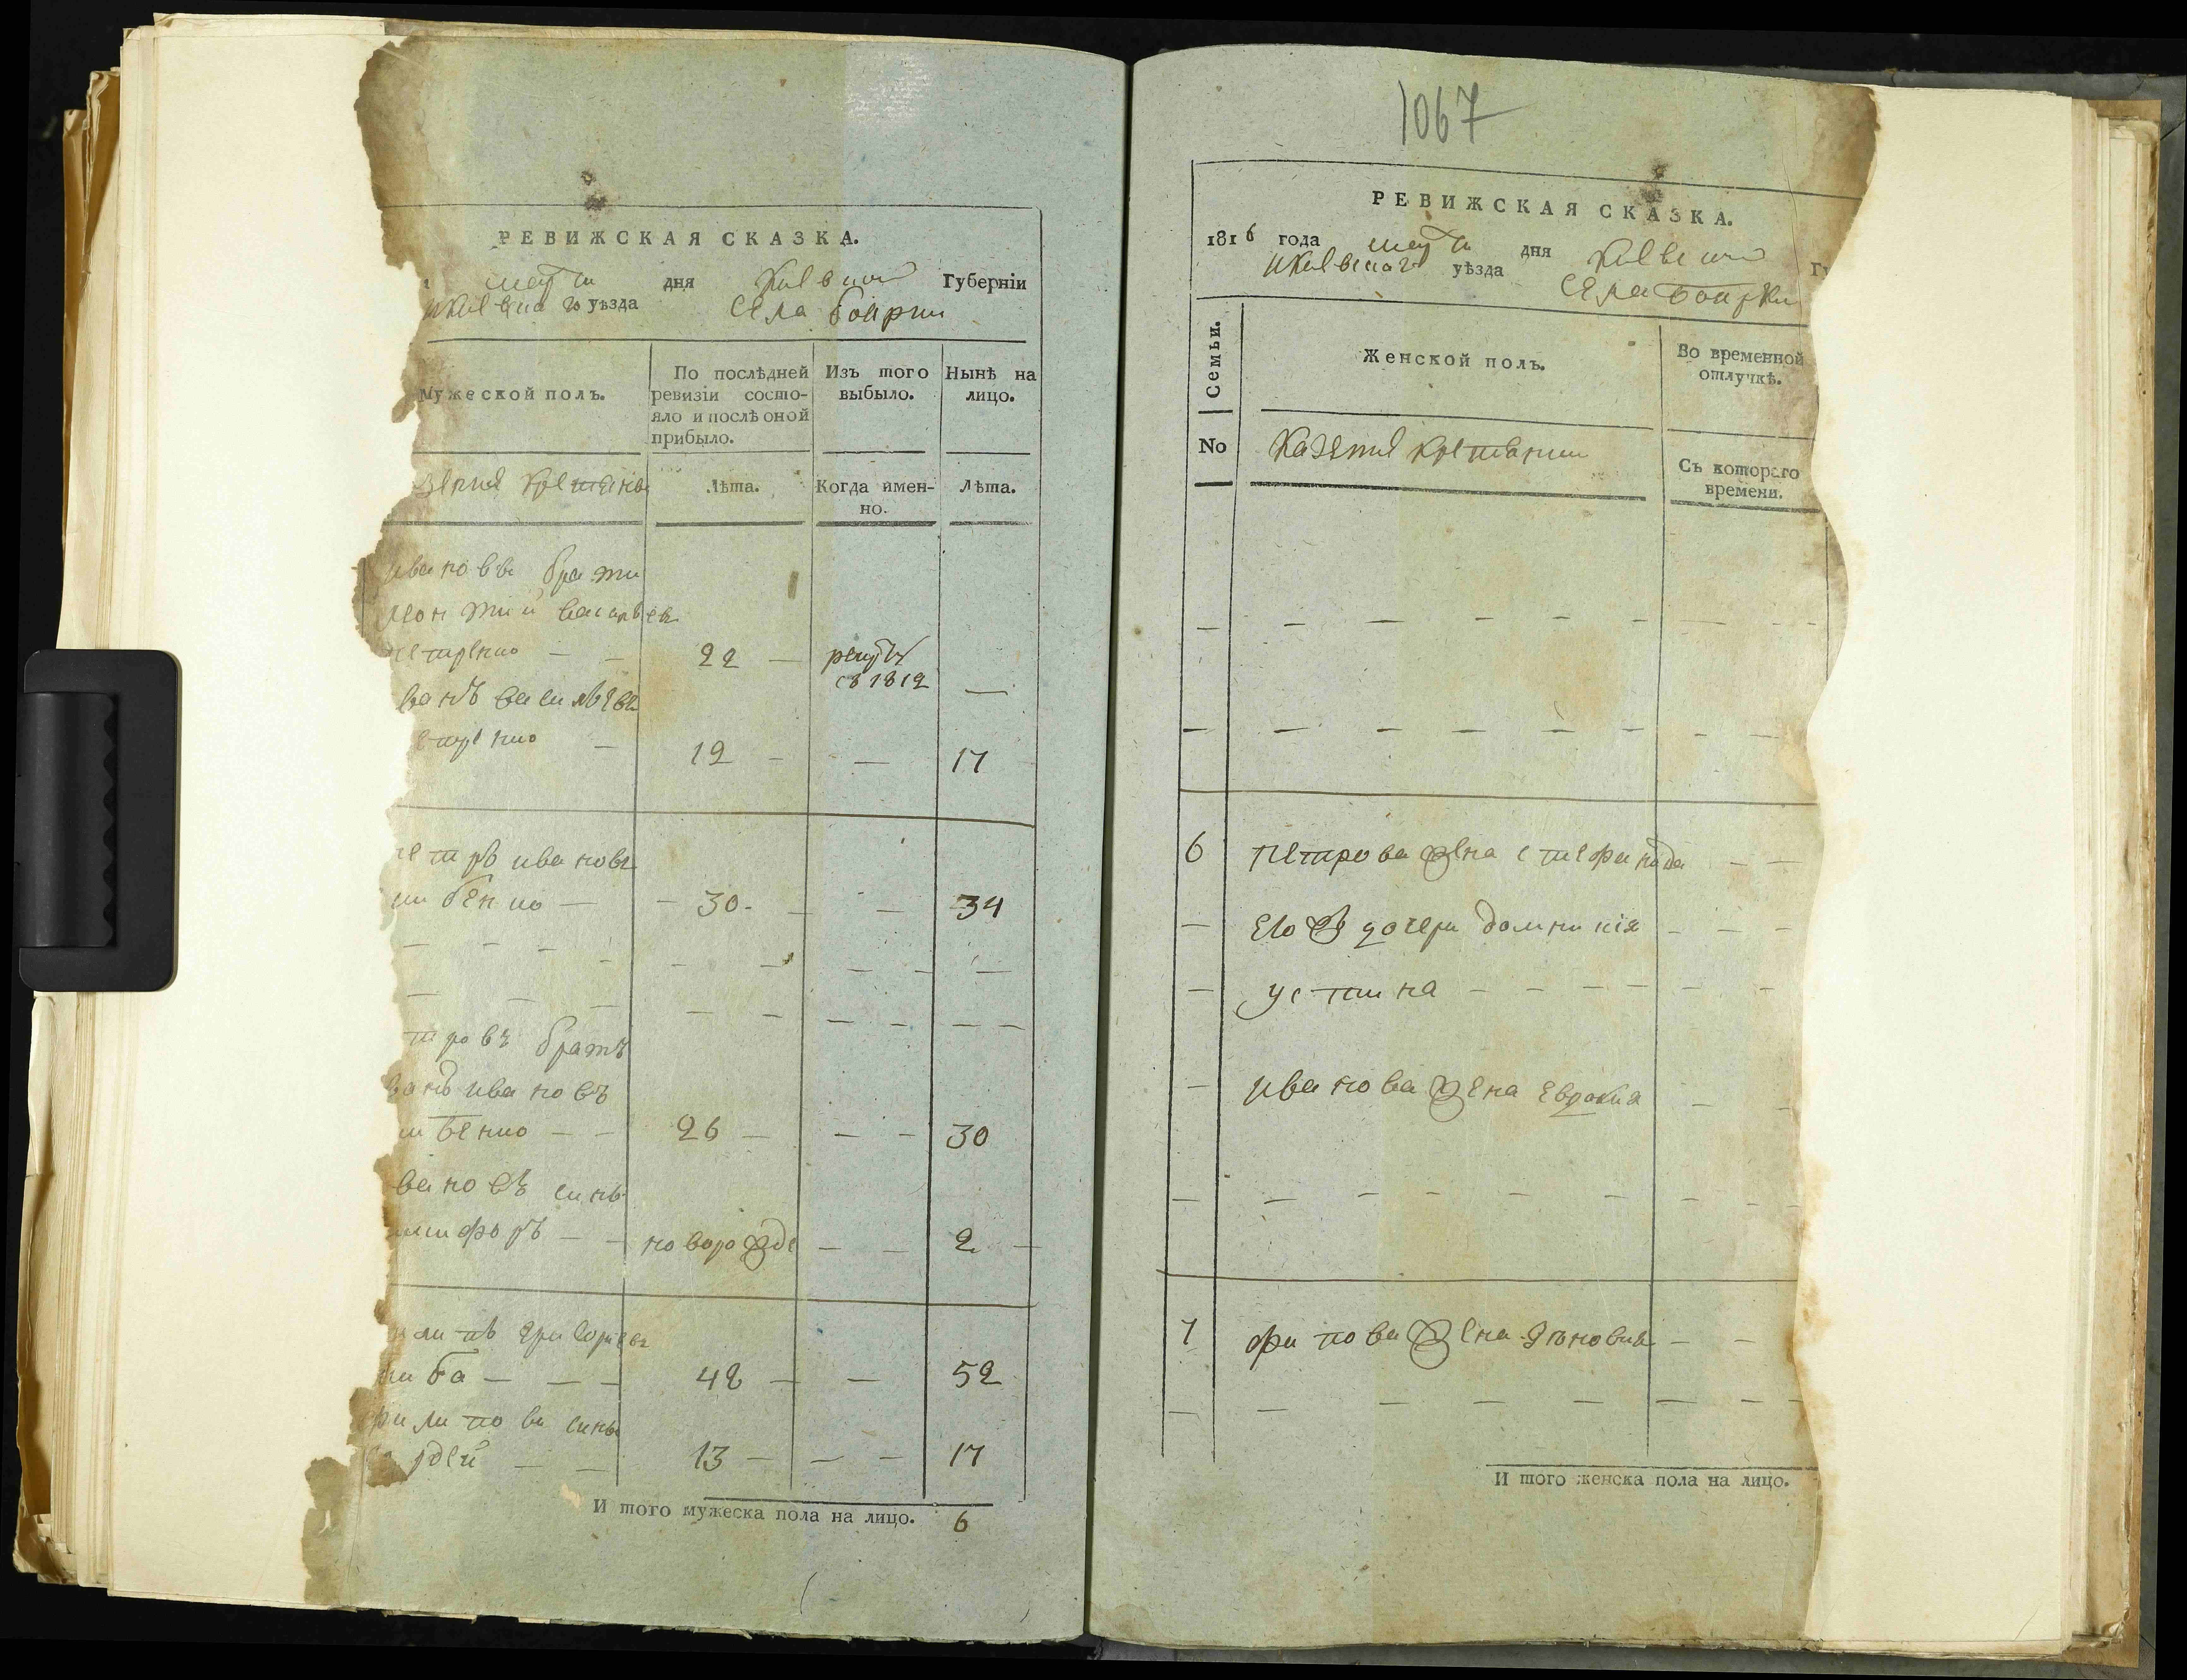 РЕВИЖСКАЯ СКАЗКА.
марта дня Киевской Губерніи
Киевскаго уѣзда Села Боярки
Мужеской полъ.
По послѣдней ревизіи состо-
яло и послѣ оной
прибыло.
Изъ того
выбыло.
Нынѣ на
лицо.
лѣта.
Когда имен-
но.
лѣта.
ивановы брати
васильевъ
22 рекрут
въ 1812
васильевъ
12 17
ивановъ
30 34
братъ
ивановъ
26 30
вановъ синъ
новорожде 2
григориевъ
42 52
филипова синъ
13 17
И того мужеска пола на лицо. 6
1067
РЕВИЖСКАЯ СКАЗКА.
1816 года марта дня Киевской
Киевскаго уѣзда Села Боярки
Семьи.
Женской полъ.
Во временной
отлучкѣ.
No
Казенние крестьянки
Съ котораго
времени.
6 Петрова жена стефанида
его же дочери домникія
устина
Иванова жена Евдокия
7 фипова жена зѣновия
И того женска пола на лицо.